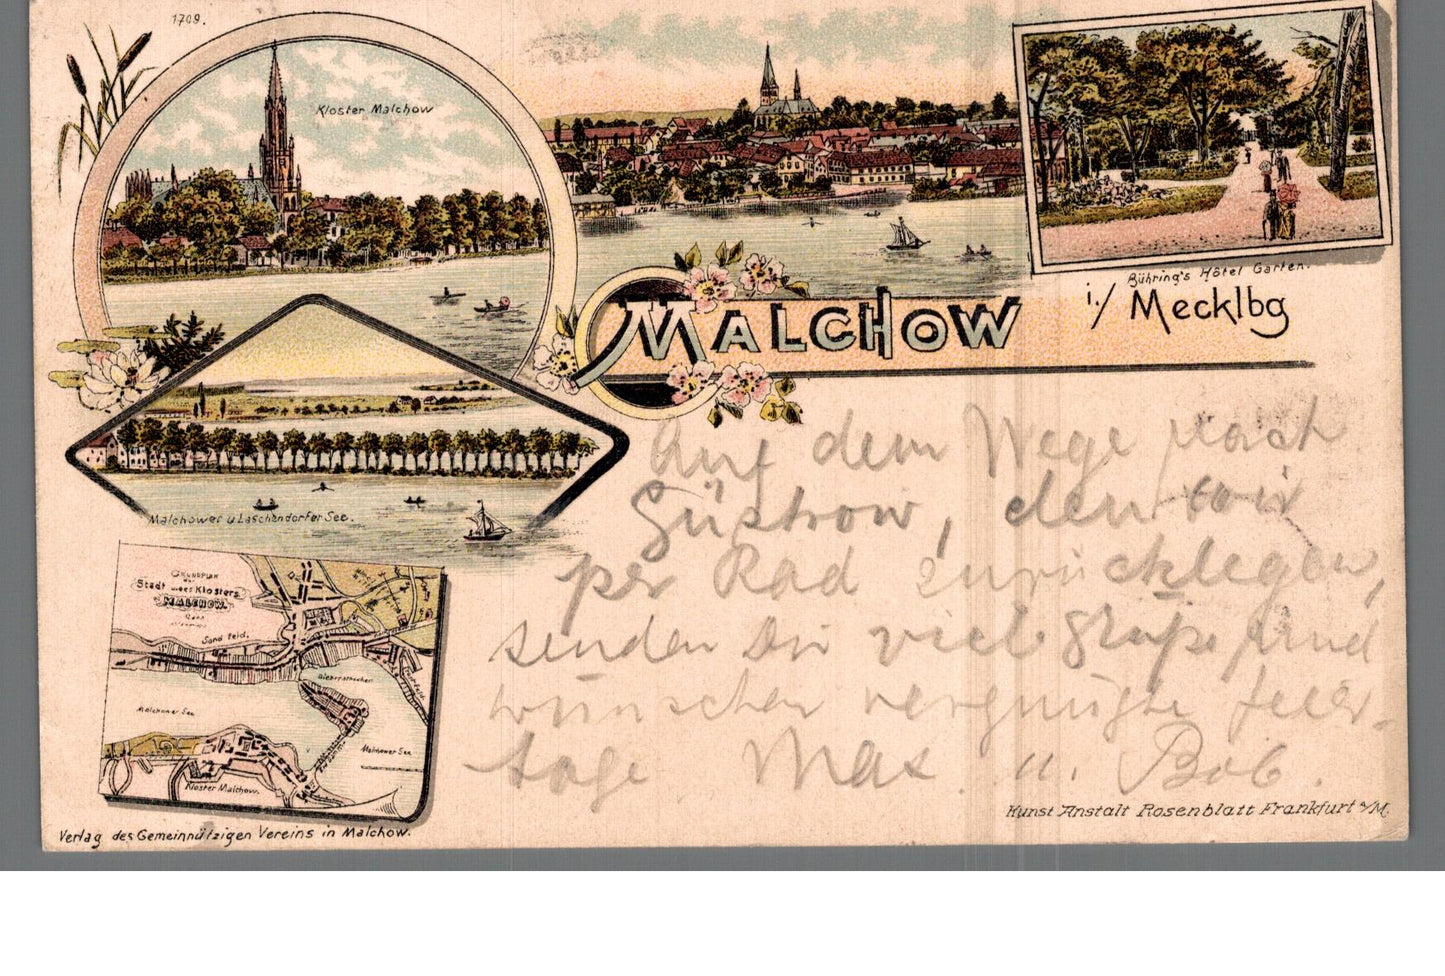 1709.
Kloster Malchow
Bühring's Hôtel Garten.
MALCHOW i./ Mecklbg
Malchower u Laschendorfer See.
GRUNDPLAN
der
Stadt und des Klosters
MALCHOW.
Sand feld.
Malchower See
Malchower See
Kloster Malchow.
Auf dem Wege nach
Güstrow, den wir
per Rad zurücklegen,
senden Dir viele Grüße und
wünschen vergnügte Feier-
tage Max u. Bob.
Verlag des Gemeinnützigen Vereins in Malchow.
Kunst Anstalt Rosenblatt Frankfurt a/M.